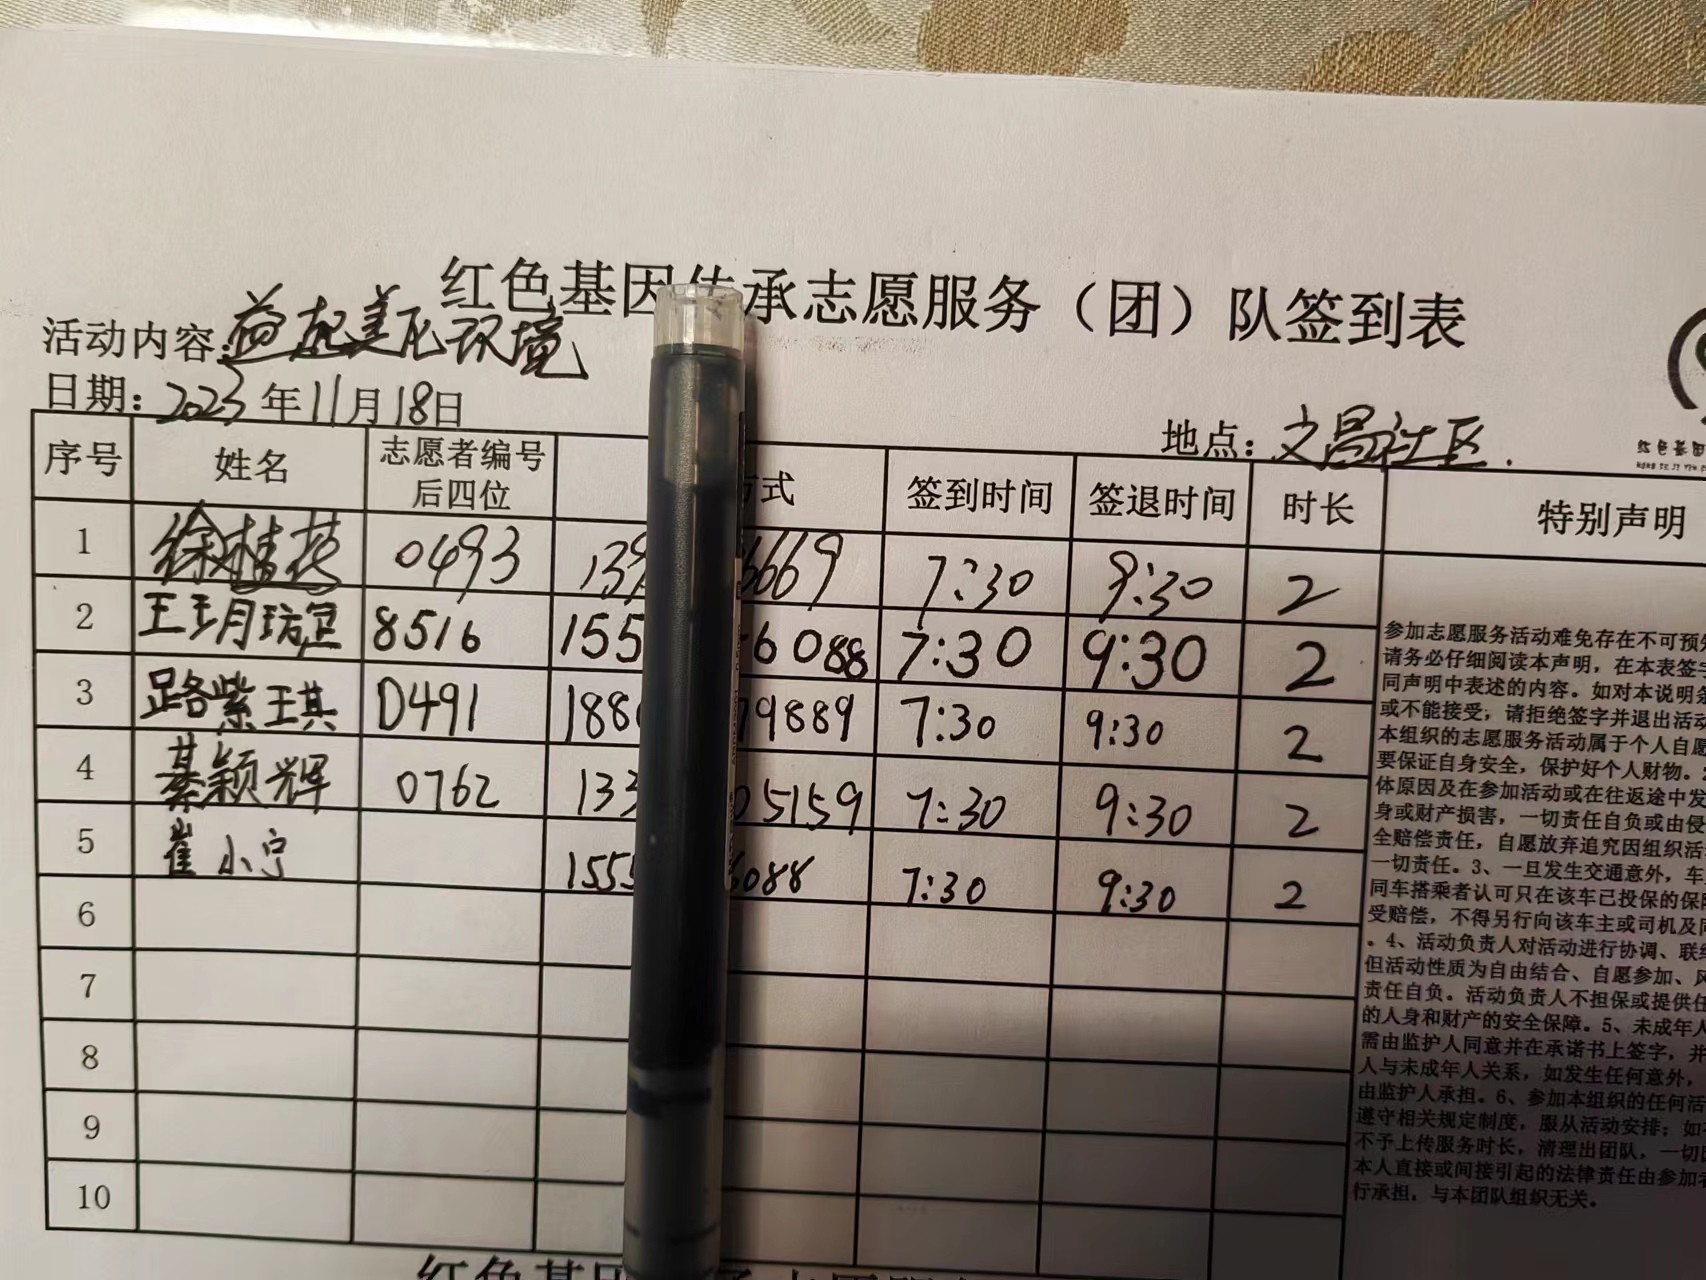 红色基因传承志愿服务（团）队签到表
活动内容:益起美化环境
日期: 2023年11月18日
地点: 文昌社区.
序号 姓名 志愿者编号后四位 方式 签到时间 签退时间 时长 特别声明
1 徐桂花 0493 139 6669 7:30 9:30 2
2 王玥 8516 155 6088 7:30 9:30 2
3 路紫琪 0491 188 79889 7:30 9:30 2
4 綦颖辉 0762 133 05159 7:30 9:30 2
5 崔小宁 1555 6088 7:30 9:30 2
6
7
8
9
10
参加志愿服务活动难免存在不可预
请务必仔细阅读本声明，在本表签字
同声明中表述的内容。如对本说明条
或不能接受，请拒绝签字并退出活动
本组织的志愿服务活动属于个人自愿
要保证自身安全，保护好个人财物。
体原因及在参加活动或在往返途中发
身或财产损害，一切责任自负或由侵
全赔偿责任，自愿放弃追究因组织活
一切责任。3、一旦发生交通意外，车
同车搭乘者认可只在该车已投保的保
受赔偿，不得另行向该车主或司机及同
。4、活动负责人对活动进行协调、联
但活动性质为自由结合、自愿参加、风
责任自负。活动负责人不担保或提供任
的人身和财产的安全保障。5、未成年人
需由监护人同意并在承诺书上签字，并
人与未成年人关系，如发生任何意外，
由监护人承担。6、参加本组织的任何活
遵守相关规定制度，服从活动安排；如
不予上传服务时长，清理出团队，一切
本人直接或间接引起的法律责任由参加者
行承担，与本团队组织无关。
红色基因